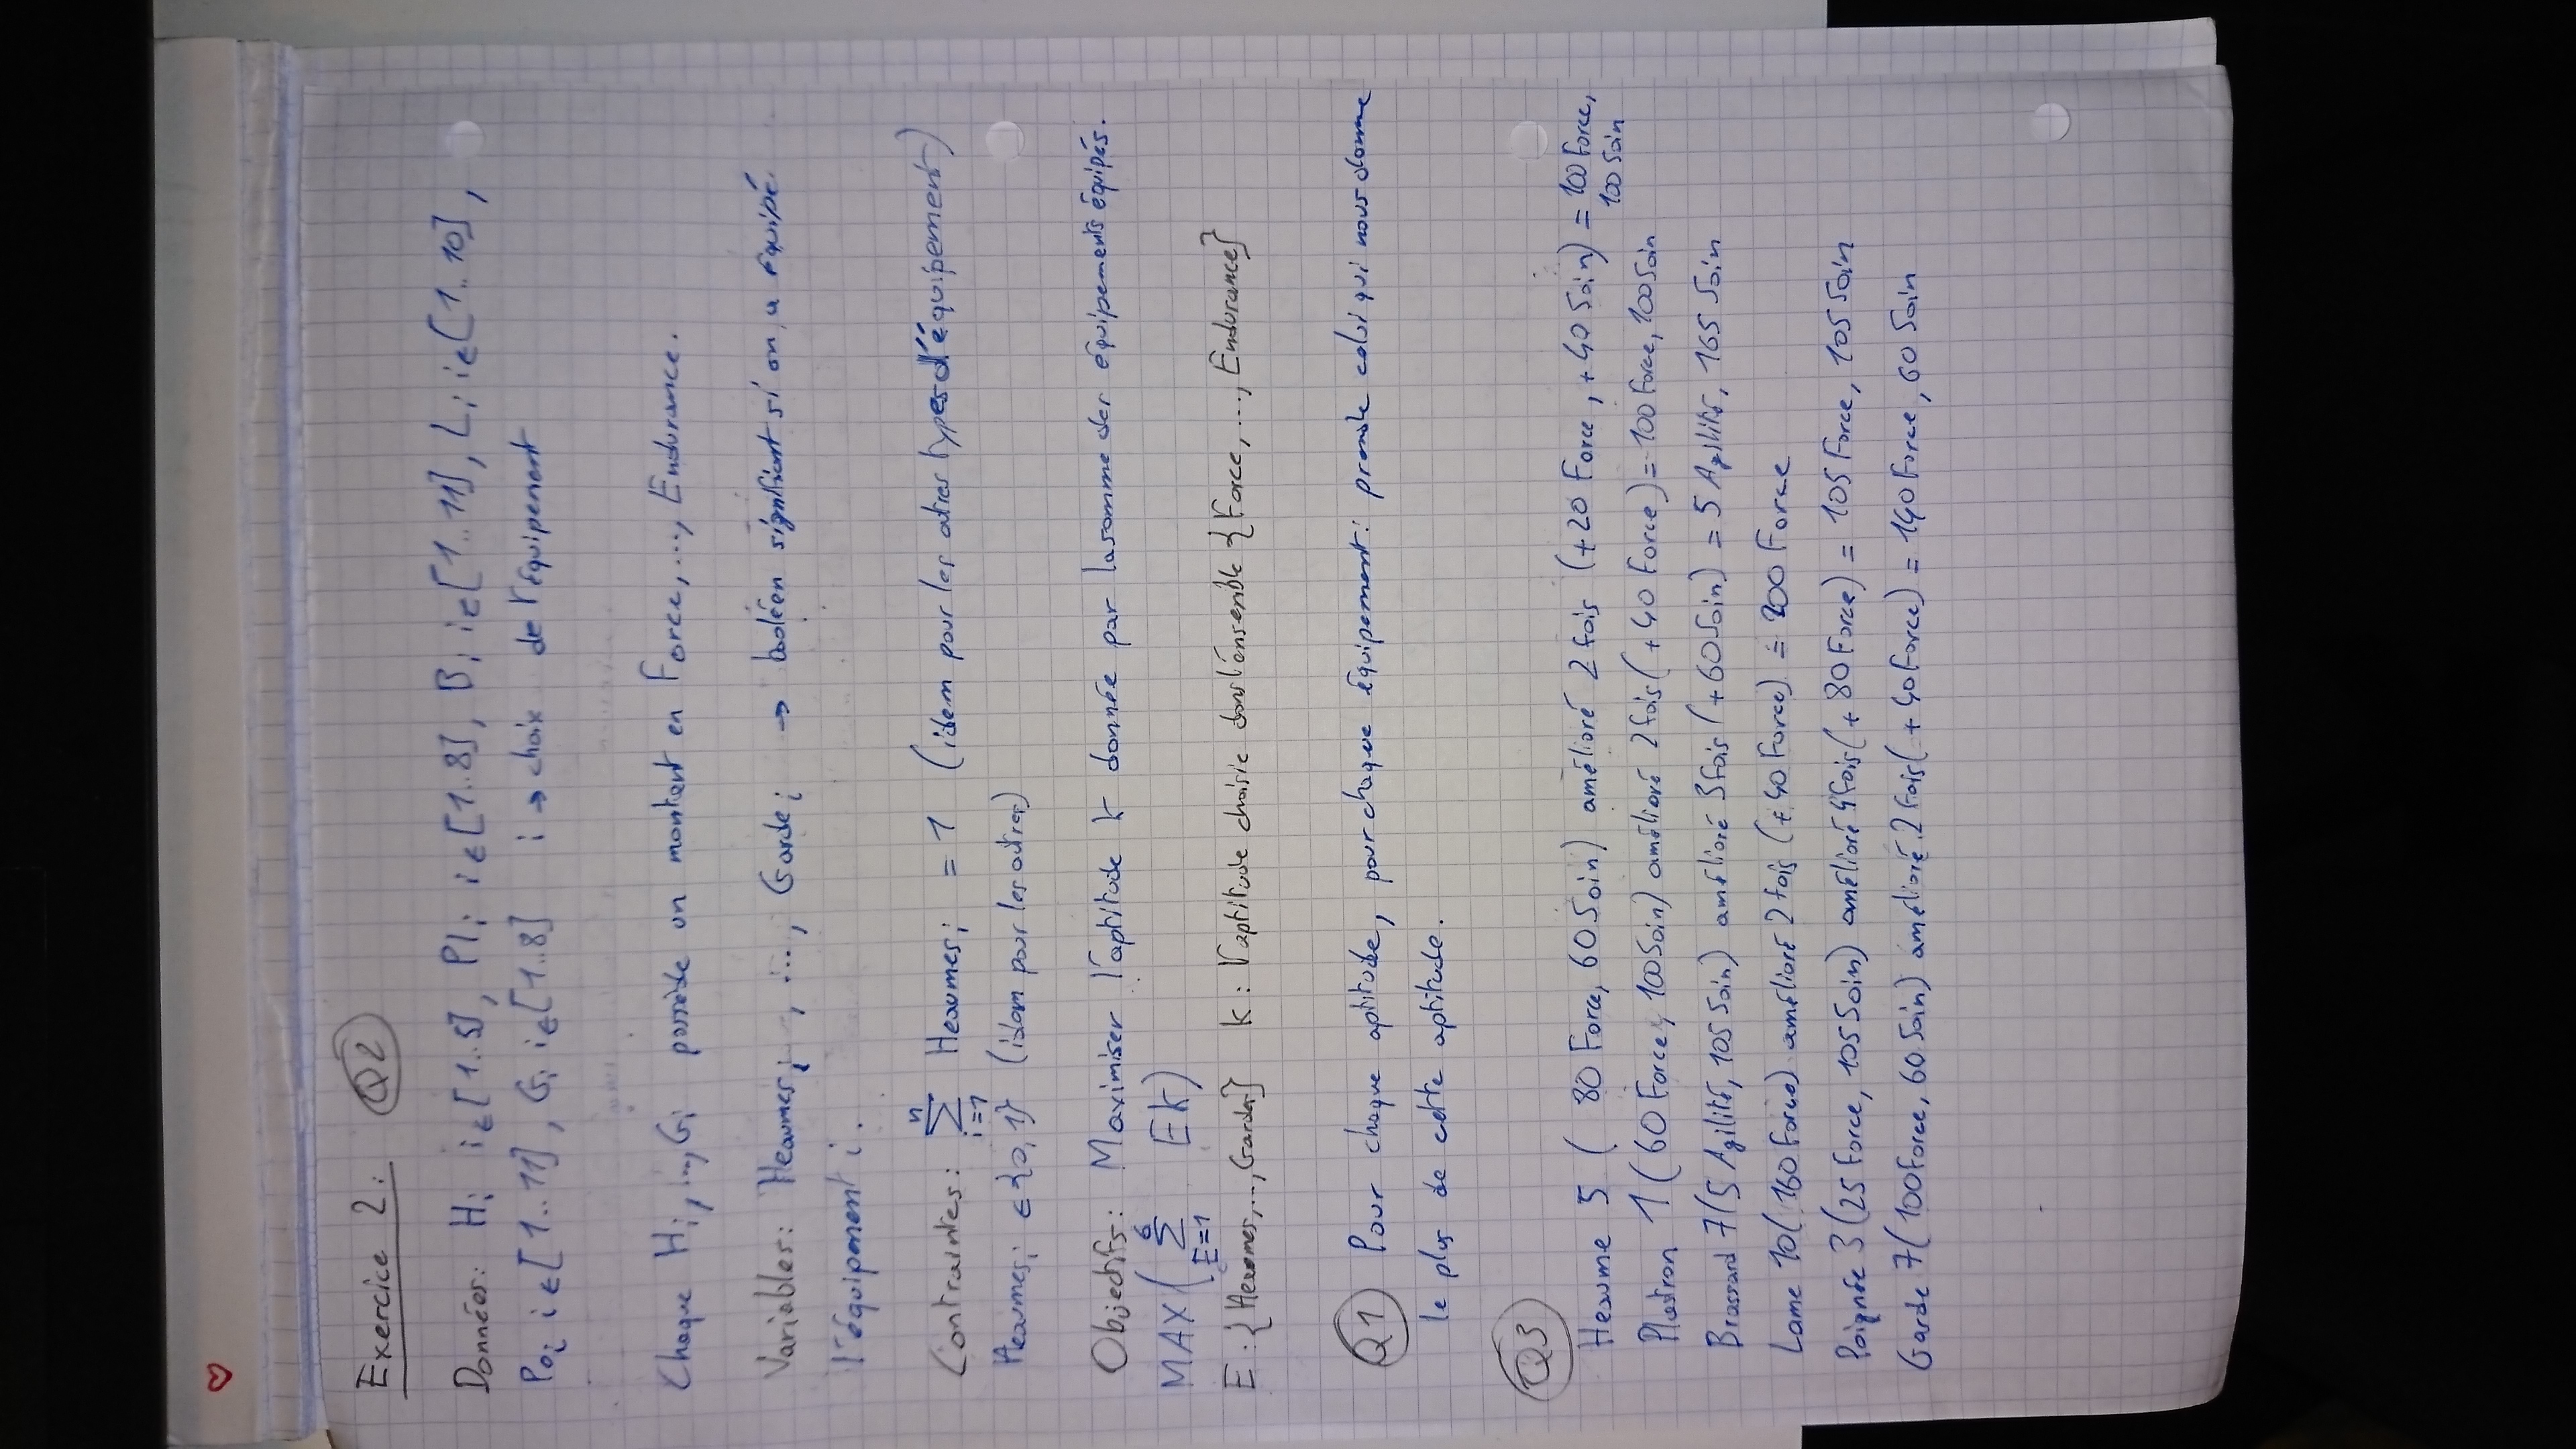 Exercice 2: Q2
Données: Hi i∈[1..5], Pli i∈[1..8], Bi i∈[1..11], Li i∈[1..10],
Poi i∈[1..11], Gi i∈[1..8] i → choix de l'équipement
Chaque Hi, ..., Gi possède un montant en Force, ..., Endurance.
Variables: Heaumesi, ..., Gardei → booléen signifiant si on a équipé
l'équipement i.
Contraintes: ∑ i=1 n Heaumesi = 1 (idem pour les autres types d'équipement)
Heaumesi ∈ {0, 1} (idem pour les autres)
Objectifs: Maximiser l'aptitude k donnée par la somme des équipements équipés.
MAX( ∑ E=1 6 Ek)
E : {Heaumes, ..., Gardes} k : l'aptitude choisie dans l'ensemble {Force, ..., Endurance}
Q1 Pour chaque aptitude, pour chaque équipement: prendre celui qui nous donne
le plus de cette aptitude.
Q3
Heaume 5 ( 80 Force, 60 Soin) amélioré 2 fois (+20 Force, +40 Soin) = 100 Force,
100 Soin
Plastron 1 (60 Force, 100 Soin) amélioré 2 fois (+40 Force) = 100 Force, 100 Soin
Brassard 7 (5 Agilité, 105 Soin) amélioré 3 fois (+60 Soin) = 5 Agilité, 165 Soin
Lame 10 (160 Force) amélioré 2 fois (+40 Force) = 200 Force
Poignée 3 (25 Force, 105 Soin) amélioré 4 fois (+80 Force) = 105 Force, 105 Soin
Garde 7 (100 Force, 60 Soin) amélioré 2 fois (+40 Force) = 140 Force, 60 Soin